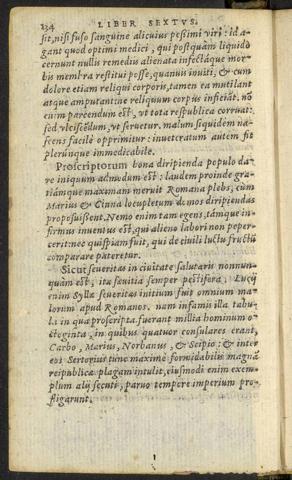 134 LIBER SEXTVS.
sit, nisi fuso sanguine alicuius pessimi viri: id a-
gant quod optimi medici, qui postquàm liquidò
cernunt nullis remediis alienata infectáque mor-
bis membra restitui posse, quanuis inuiti, & cum
dolore etiam reliqui corporis, tamen ea mutilant
atque amputant: ne reliquum corpus inficiāt. nō
enim parcendum est, vt tota respublica corruat:
sed vlciscēdum, vt seruetur. malum siquidem na-
scens facilè opprimitur: inueteratum autem fit
plerúnque immedicabile.
Proscriptorum bona diripienda populo da-
re iniquum admodum est: laudem proinde gra-
tiámque maximam meruit Romana plebs, cùm
Marius & Cinna locupletum domos diripiendas
proposuissent. Nemo enim tam egens, támque in-
firmus inuentus est, qui alieno labori non peper-
cerit: nec quispiam fuit, qui de ciuili luctu fructū
comparare pateretur.
Sicut seueritas in ciuitate salutaris nonnun-
quàm est, ita sæuitia semper pestifera. Lucij
enim Syllæ seueritas initium fuit omnium ma-
lorum apud Romanos. nam infamis illa tabu-
la in qua proscripta fuerant millia hominum o-
ctoginta, in quibus quatuor consulares erant,
Carbo, Marius, Norbanus, & Scipio: & inter
eos Sertorius tunc maximè formidabilis magnā
reipublicæ plagam intulit, eiusmodi enim exem-
plum alij secuti, paruo tempore imperium pro-
fligarunt.